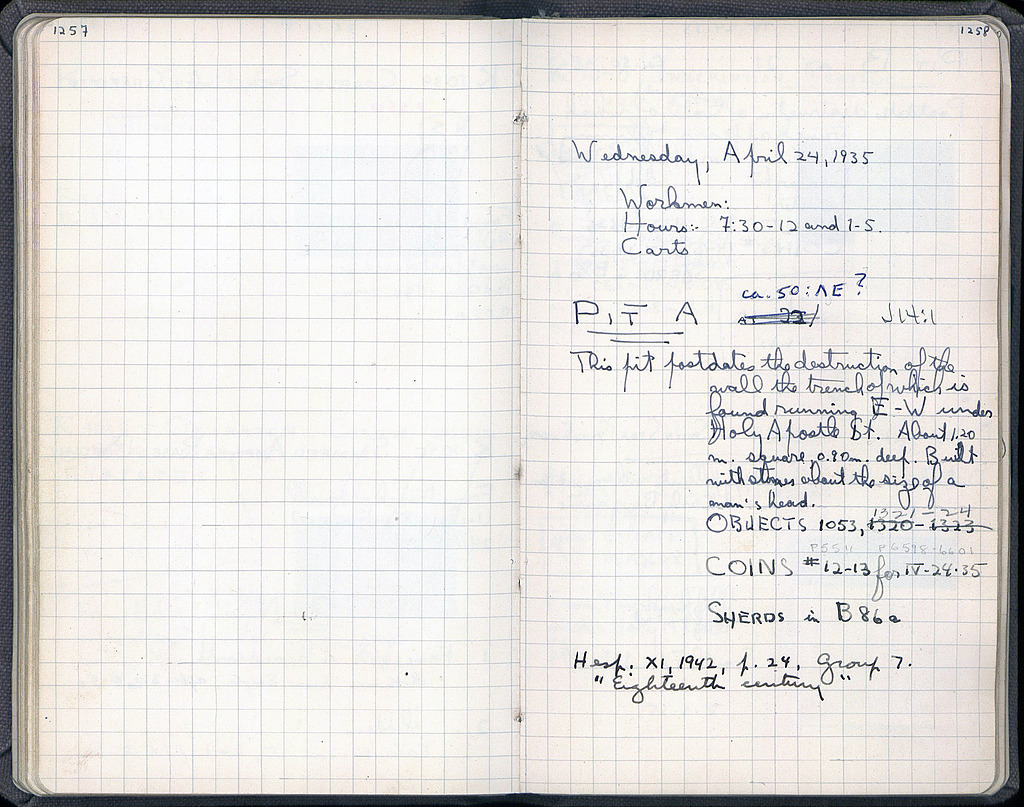 1257
1258
Wednesday, April 24, 1935
Workmen:
Hours:- 7:30-12 and 1-5.
Carts
ca. 50:ΛE?
PIT A
J14:1
This pit postdates the destruction of the
wall the trench of which is
found running E-W under
Holy Apostle St. About 1.20
m. square, 0.90m. deep. Built
with stones about the size of a
man's head.
1321-24
OBJECTS 1053, 1320-1323
P5511 P6598-6601
COINS #12-13 for IV-24-35
SHERDS in B 86a
Hesp. XI, 1942, p. 24, Group 7.
"Eighteenth century"